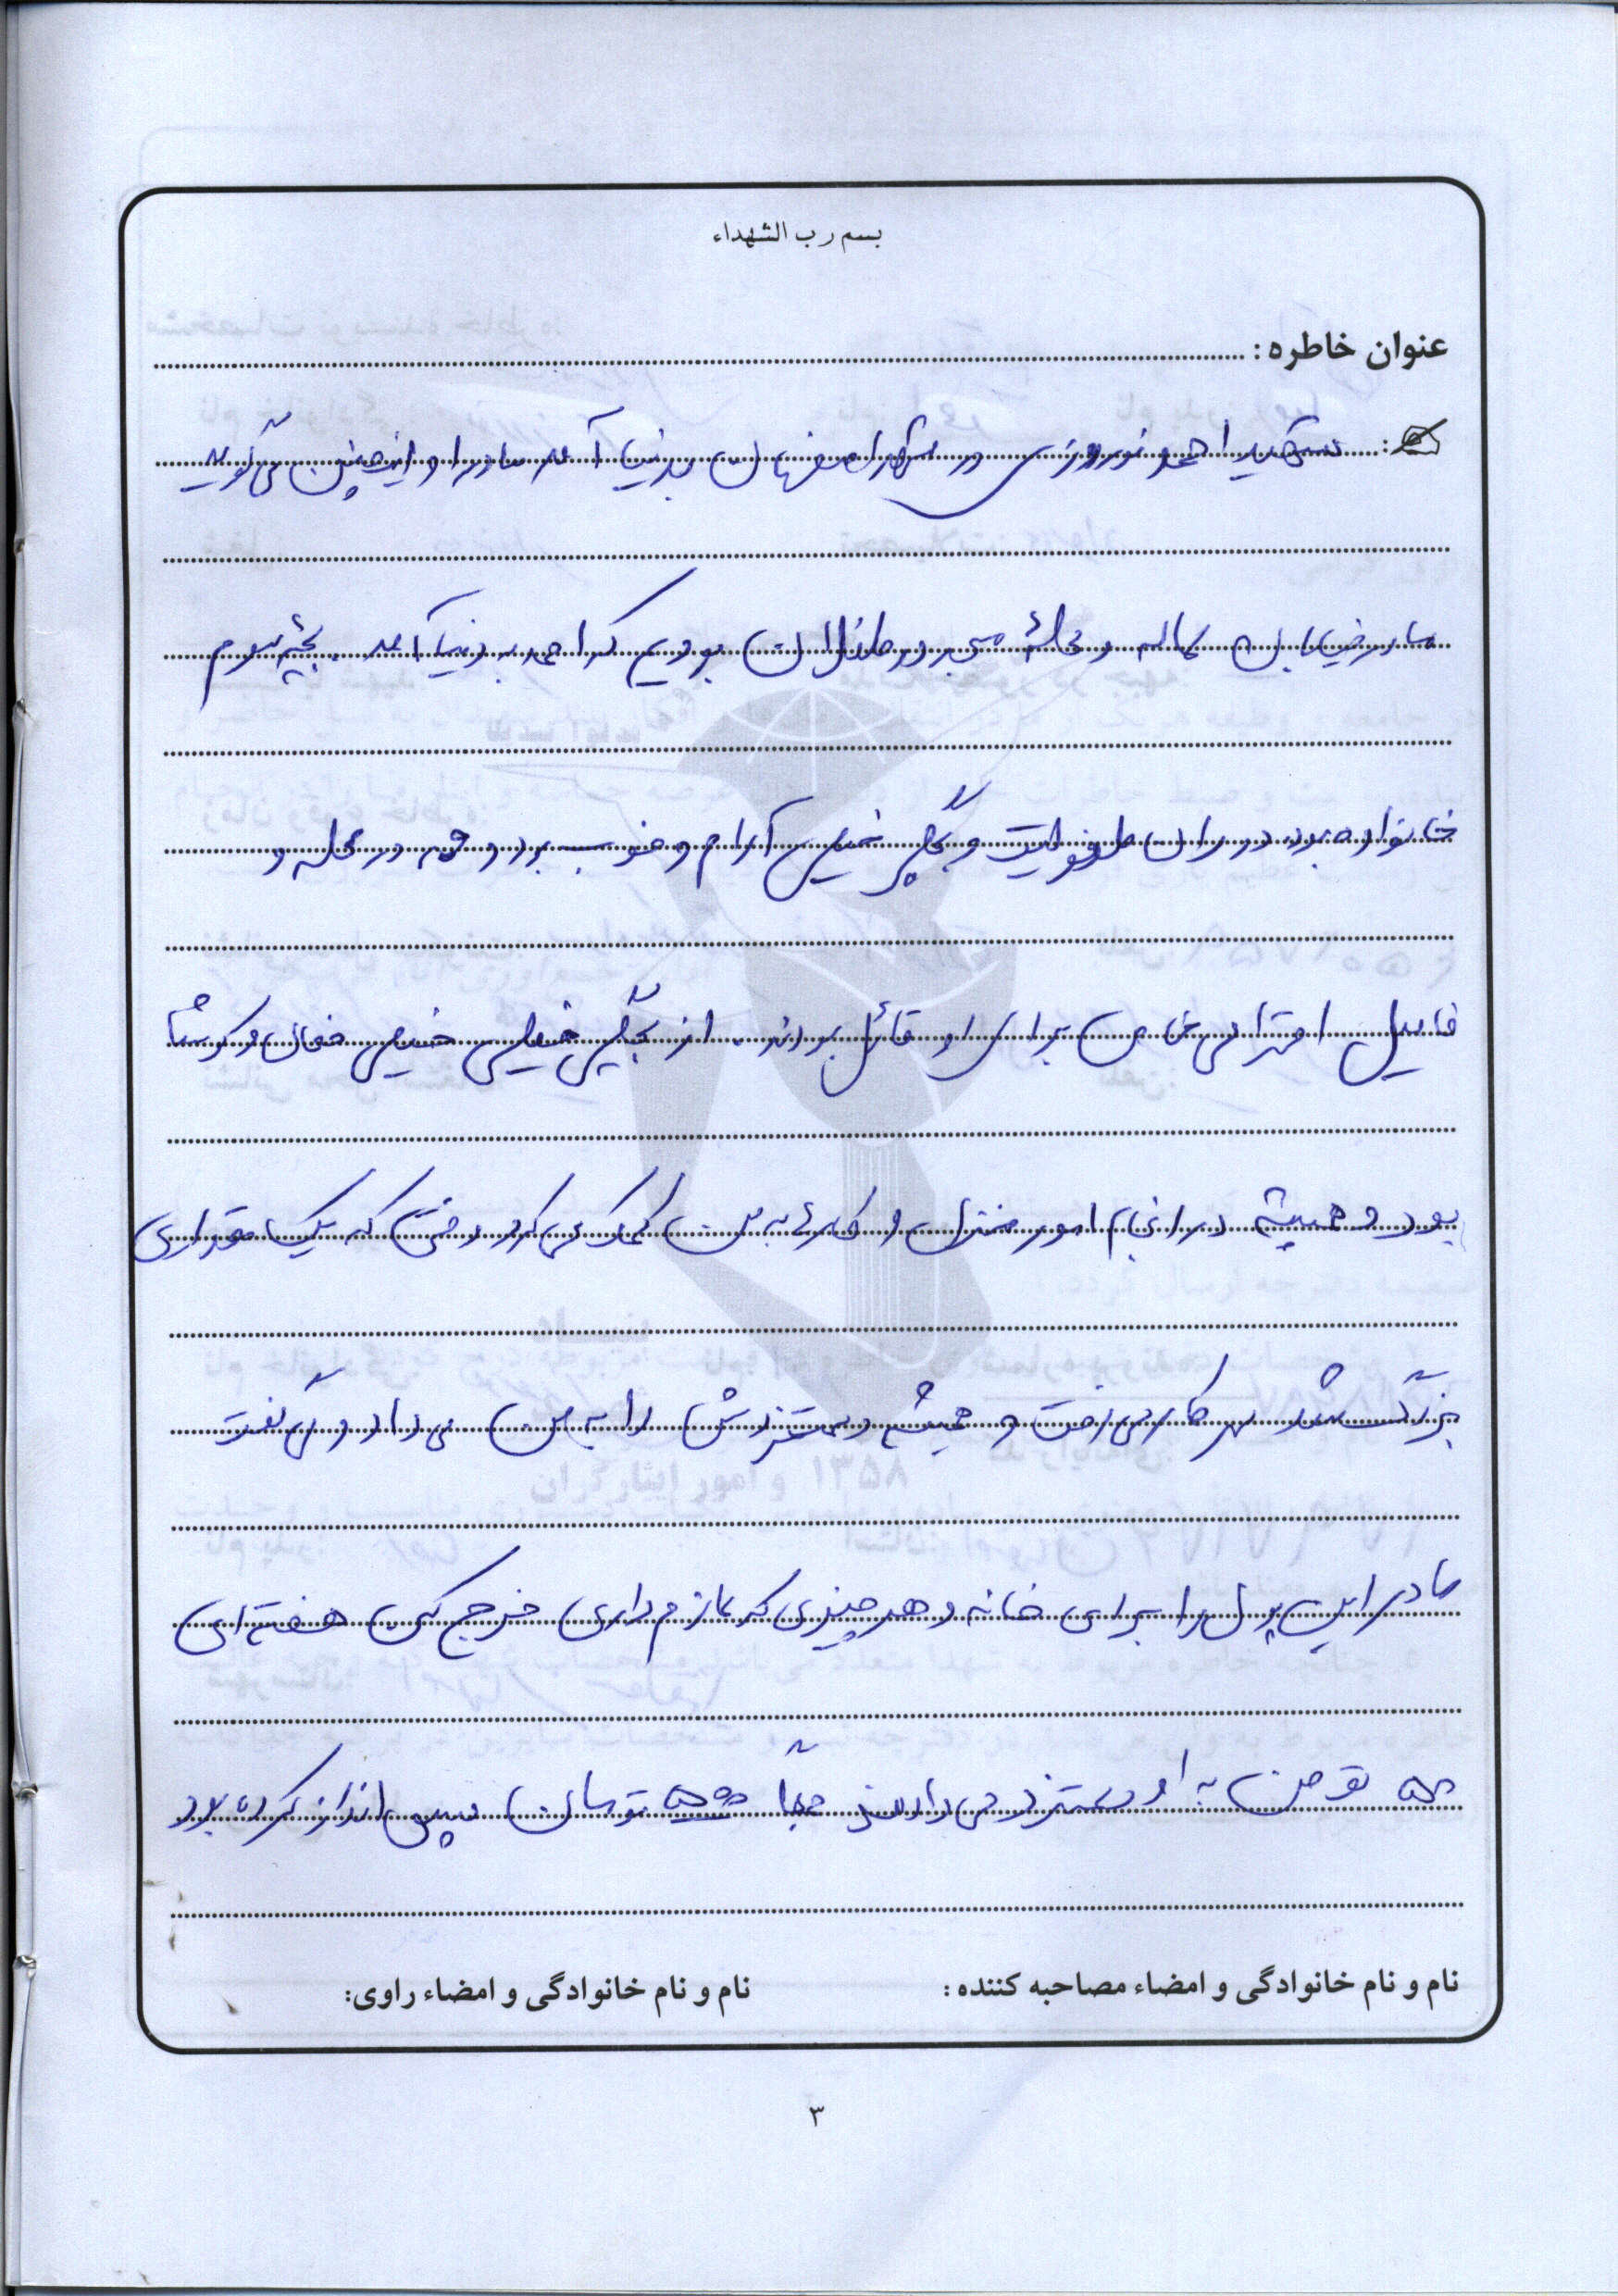 بسم رب الشهداء
عنوان خاطره :
شهید احمد نوروزی در شهر اصفهان بدنیا آمد مادر او این چنین می گوید
ما در خیابان کماله و محله مسجد در بودیم که احمد به دنیا آمد. بچه سوم
خانواده بود دوران طفولیت و بچگی خیلی آرام و خوب بود و همه در محله و
فامیل احترامی خاص برای او قائل بودند. از بچگی خیلی خیلی فعال و کوشا
بود و همیشه در انجام امور منزل و کارها به من کمک می کرد وقتی که یک مقداری
بزرگ شد سر کار می رفت و همیشه دستمزدش را به من می داد و می گفت
مادر این پول را برای خانه و هر چیزی که لازم داری خرج کن هفته ای
۵۰ تومن به او دستمزد می دادند ۵۰۰ تومان پس انداز کرده بود
نام و نام خانوادگی و امضاء مصاحبه کننده :
نام و نام خانوادگی و امضاء راوی:
۳